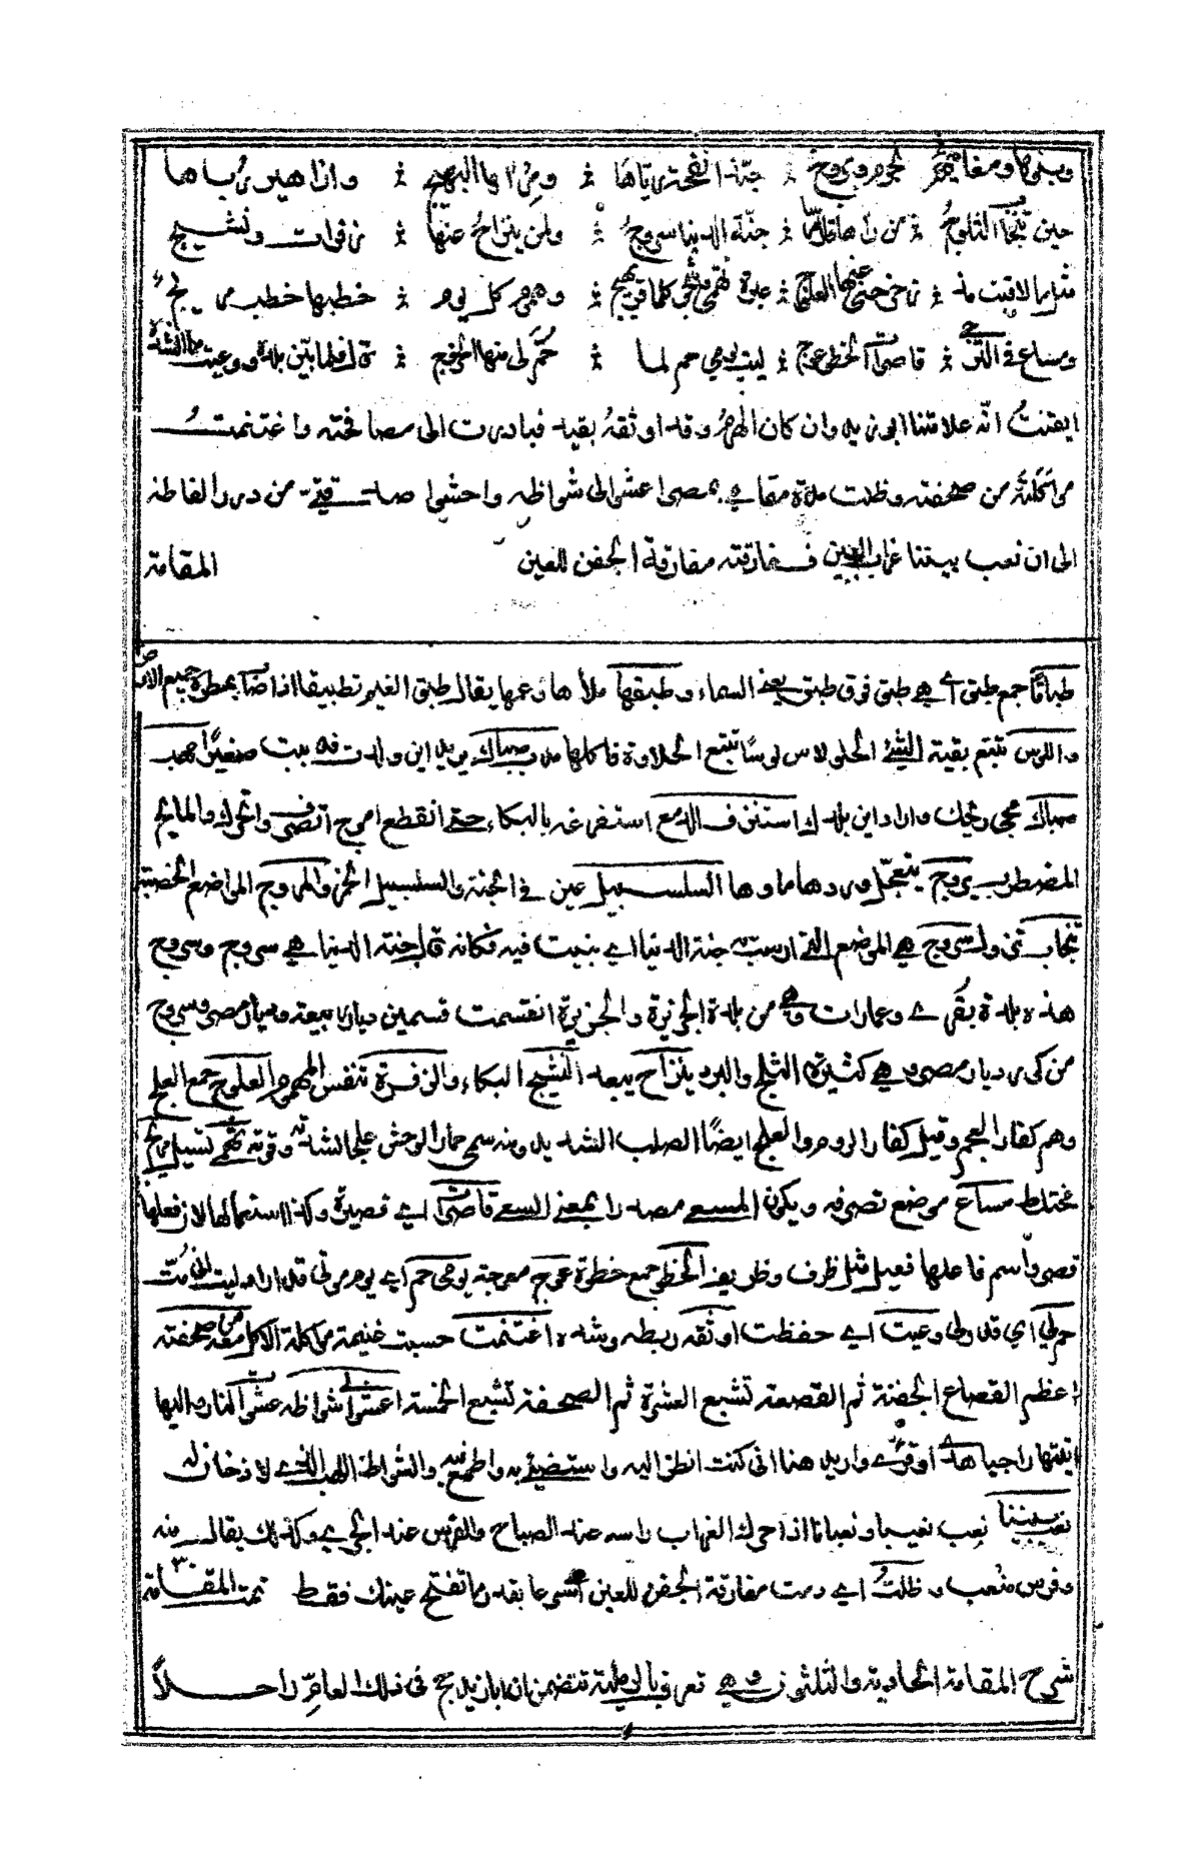 وبنوها ومغانيهم نجوم وبروج ؞ حبّذا نفحة ريّاها ؞ ومرآها البهيج ؞ وازاهير رباها
حين تنجاب الثلوج ؞ من رآها قال ؞ جنّة الدنيا سروج ؞ ولمن ينزاح عنها ؞ زفرات ونشيج
مثل ما لاقيت مذ ؞ زحزحني عنها العلوج ؞ عبرة تهمي وشجو كلما قرّ يهيج ؞ وهموم كل يوم ؞ خطبها خطب مريج
ومساع في الترجّي ؞ قاصرات الخطو عوج ؞ ليت يومي حم لما ؞ حُمّ لي منها الخروج ؞ قال فلما بيّن بلده ووعيت ما انشده
ايقنت انّه علامتنا ابو زيد وان كان الهرم قد اوثقه بقيد فبادرت الى مصافحته واغتنمت
مواكلته من صحفته وظلت مدة مقامي بمصر اعشوا الى شواظه واحشوا صدفتي من درر الفاظه
الى ان نعب بيننا غراب البين ففارقته مفارقة الجفن للعين المقامة
طباقًا جمع طبق اي هي طبق فوق طبق يعني السماء وطبقها ملأها وعمها يقال طبق الغيم تطبيقا اذا اصاب بمطره جميع الارض
واللوس تتبع بقية الشئ الحلو لاس لوسًا تتبع الحلاوة فاكلها
صباك وارا د اين بلدك استنزف الدمع استفرغه بالبكاء حتى انقطع
المضطرب سروج ماوها السلسبيل عين في الجنة والسلسبيل الخمر والمروج المواضع الخصبة
سروج هي الموضع جنة الدنيا اي فيه فكانه قال جنة الدنيا هي سروج وسروج
هذه بلدة بقرى وعمارات وهي من بلدة الجزيرة والجزيرة انقسمت قسمين ديار ربيعة وديار مضر وسروج
من ديار مضر وهي كثيرة الثلج والبرد ينزاح يبعد النشيج البكاء والزفرة تنفس المهموم العلوج جمع العلج
وهم كفار العجم وقيل كفار الروم والعلج ايضًا الصلب الشديد ومنه سمي حمار الوحش علجا لشدته وقوته تهمي تسيل مريج
مختلط مساع موضع تصرفه ويكون المسعى مصدرا بمعنى السعي قاصرات اي قصيرة وكذا استعمالها لان فعلها
قصر واسم فاعلها فعيل مثل ظرف وظريف الخطو جمع خطوة عوج معوجة يومي حم اي يوم موتي قدر اراد ليتني مُتّ
حم لي اي قدر لي وعيت اي حفظت اوثقه ربطه وشده اغتنمت حسبت غنيمة مواكلة الاكل معه من صحفته
اعظم القصاع الجفنة ثم القصعة تشبع العشرة ثم الصحفة تشبع الخمسة اعشوا الى شواظه عشوت النار واليها
اتيتها راجيا هدى او قرى واريد هنا اني كنت انظر اليه واستضئ به واطمع فيه والشواظ اللهب الذي لا دخان له
نعب بيننا نعب نعيبا ونعبانا اذا حرك الغراب راسه عند الصياح والفرس عند الجري وكذلك يقال منه
وفرس منعب وظلت اي دمت مفارقة الجفن للعين اسرعها بقدر ما تفتح عينك فقط تمت المقامة ٣٠
شرح المقامة الحادية والثلثون وهي تعرف بالرملية تتضمن ان ابا زيد حج في ذلك العام راحلًا